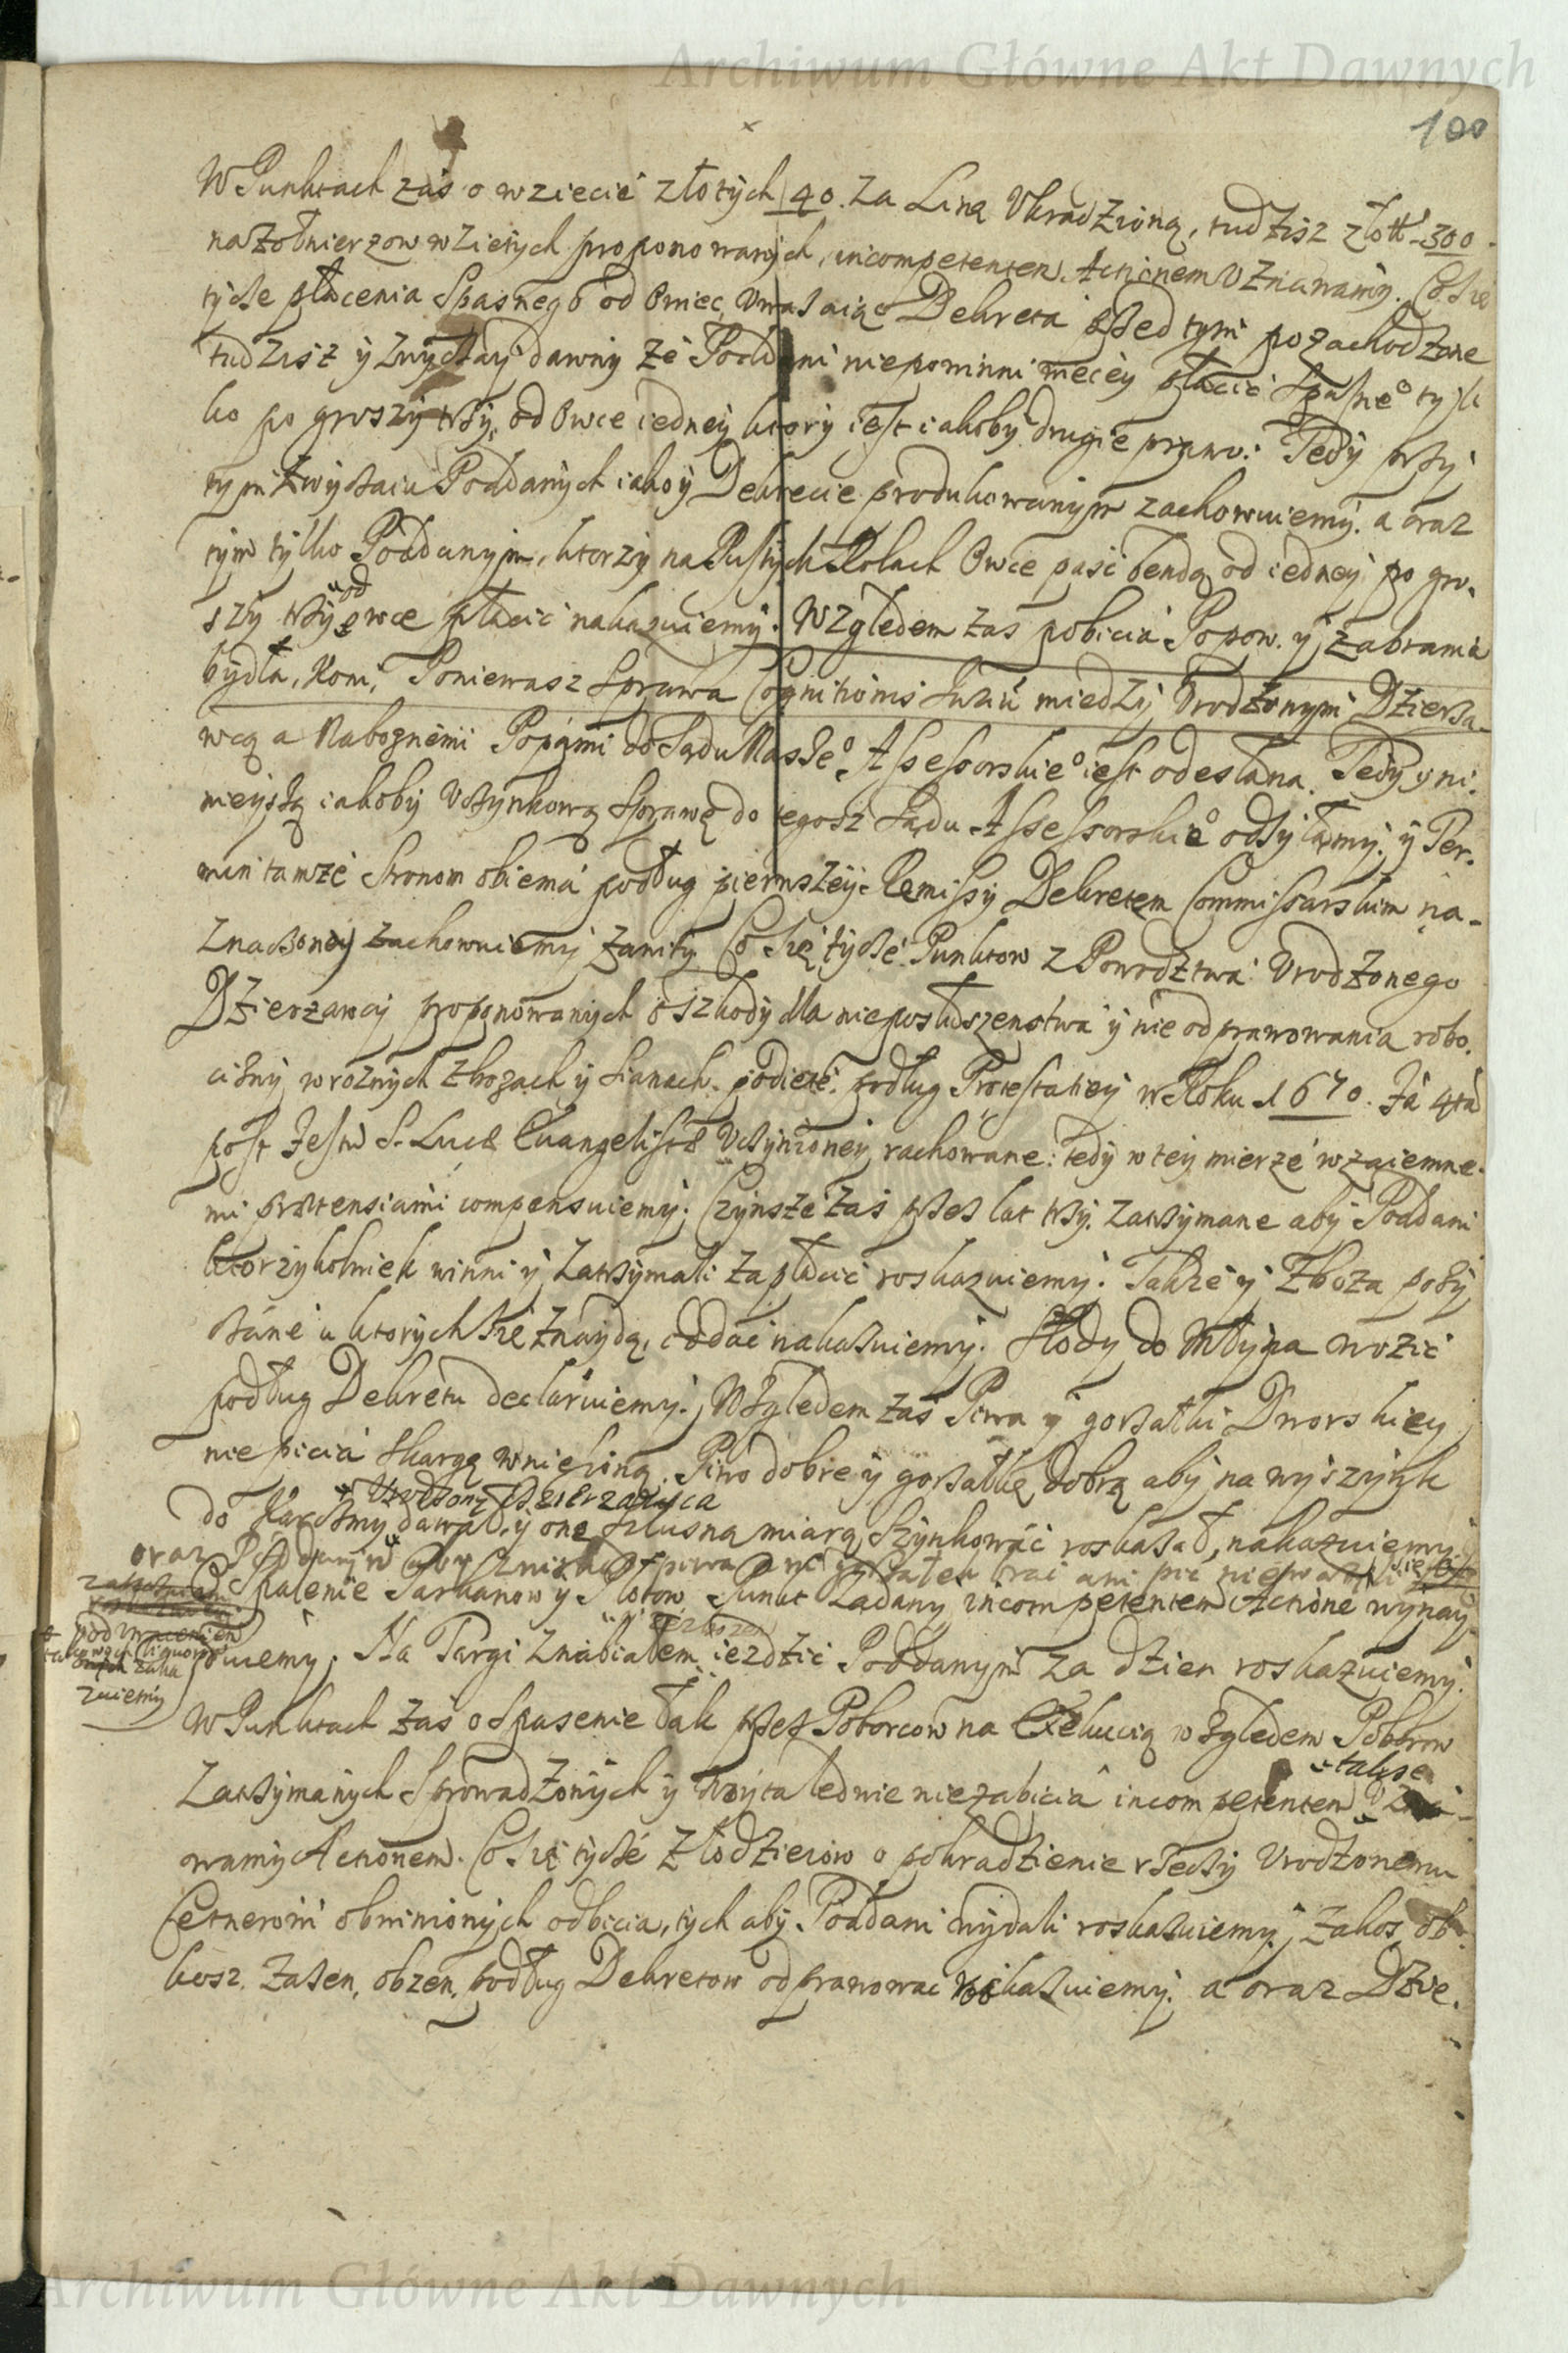 Archiwum Główne Akt Dawnych
100
W Punktach zaś o wziecie złotych 40. za Linę Vkradzioną, tudzisz złott. 300
na zołnierzow wzietych proponowanych, incompetentem Actionem Vznawamy. Co się
tycze płacenia Spasnego od Owiec, Vważaiąc Dekreta przed tym pozachodzone
tudzisz y zwyczay dawny ze Poddani niepowinni wiecey płacić Spasneo tyl
ko po groszy trzy, od Owce iedney ktory iest iakoby drugie prawo: Tedy przy
tym zwyczaiu Poddanych iako y Dekrecie produkowanym zachowuiemy. a oraz
tym tylko Poddanym, ktorzy na Pustych Rolach Owce paść bendą od iedney po gro-
szy trzy od owce płacić nakazuiemy. Względem zas pobicia Popow. y zabrania
bydła, Koni, Poniewasz Sprawa Cognitionis Iuris miedzy Vrodzonym Dzierza-
wcą a Naboznemi Popami do Sądu Naszeo Assessorskieo iest odesłana. Tedy y ni-
nieyszą iakoby Vczynkową Sprawę do tegosz Sądu Assessorskieo odsyłamy, y Ter-
min tamze Stronom obiema podług pierwszey Remissy Dekretem Commissarskim na-
znaczoney zachowuiemy zawity. Co się tycze Punktow z Powodztwa Vrodzonego
Dzierzawcy proponowanych o szkody dla nieposłuszenstwa y nie odprawowania robo-
cizny w roznych zbozach y Sianach podięte podług Protestatiey w Roku 1670. Fa 4ta
post Festum S. Lucæ Euangelistæ Vczynioney rachowane: tedy w tey mierze wzaiemne-
mi prætensiami compensuiemy. Czynsze zaś przez lat trzy zatrzymane aby Poddani
ktorzykolwiek winni y zatrzymali zapłacić roskazuiemy. Takze y Zboza pozy
czane u ktorych się znaydą, oddać nakazuiemy. Słody do Młyna wozić
podług Dekretu declaruiemy. Względem zaś Piwa y gorzałki Dworskiey
niepicia skargę wniesioną. Piwo dobre y gorzałkę dobrą aby na wyszynk
Vrodzony Dzierzawca
do Karczmy dawał y one słuszną miarą szynkować roskazał, nakazuiemy.
oraz Poddanym aby z piwa ani gorzałek brać ani pić niewazyli się
pod wraceniem
takowych liquorow
zaka
zuiemy
Spalenie Parkanow y Płotow Punkt zadany incompetentem Actione wynay-
duiemy. Na Targi z nabiałem iezdzić Poddanym za dzien roskazuiemy.
W Punktach zas o Spasenie Łąk przez Poborcow na Exekucią względem Poborow
takze
zatrzymanych sprowadzonych y niezabicia incompetentem Vzna-
wamy Actionem. Co się tycze złodzieiow o pokradzienie rzeczy Vrodzonemu
Cetnerowi obwinionych odbicia, tych aby Poddani wydali roskazuiemy. Zakos, ob-
kosz, zazen, obzen, podług Dekretow odprawować roskazuiemy. a oraz Dzie-
Archiwum Główne Akt Dawnych